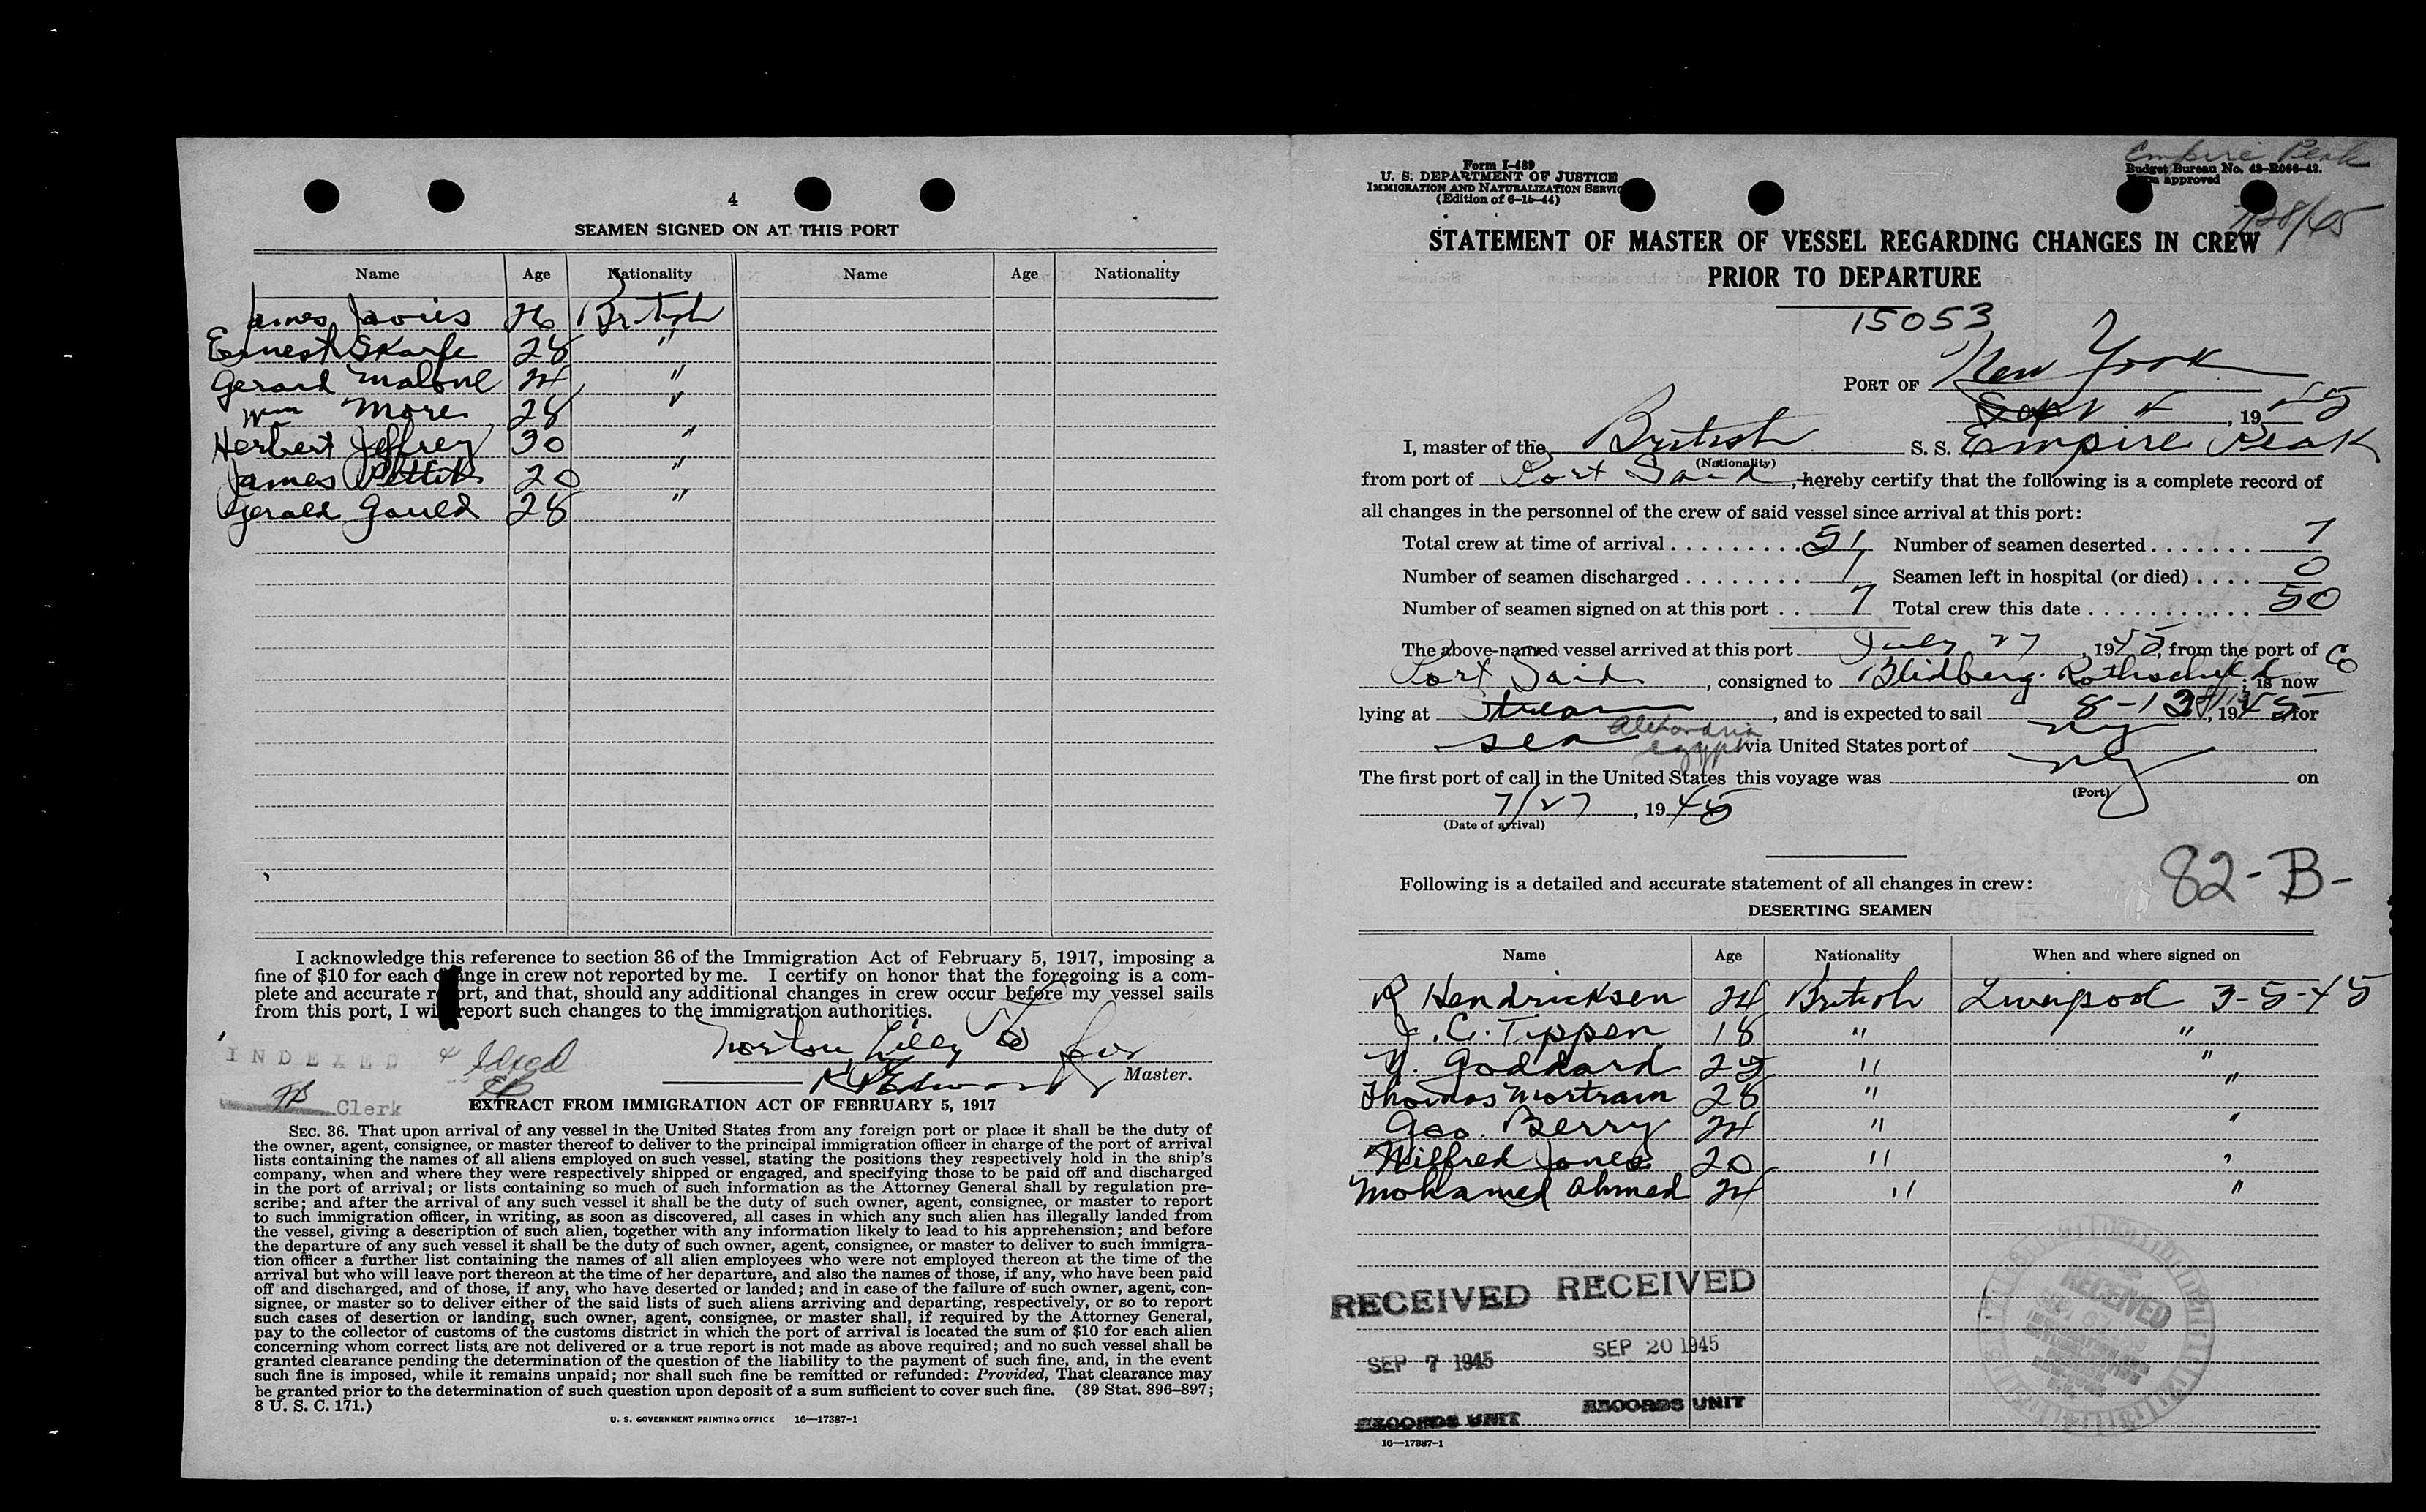 4
SEAMEN SIGNED ON AT THIS PORT
Name Age Nationality Name Age Nationality
James Davies 26 British
Ernest Skarfe 28 "
Gerard Malone 24 "
Wm More 28 "
Herbert Jeffrey 30 "
James Pettit 20 "
Gerald Gauld 28 "
I acknowledge this reference to section 36 of the Immigration Act of February 5, 1917, imposing a
fine of $10 for each change in crew not reported by me. I certify on honor that the foregoing is a com-
plete and accurate report, and that, should any additional changes in crew occur before my vessel sails
from this port, I will report such changes to the immigration authorities.
Norton, Lilly Co for
Master.
INDEXED
Clerk
EXTRACT FROM IMMIGRATION ACT OF FEBRUARY 5, 1917
SEC. 36. That upon arrival of any vessel in the United States from any foreign port or place it shall be the duty of
the owner, agent, consignee, or master thereof to deliver to the principal immigration officer in charge of the port of arrival
lists containing the names of all aliens employed on such vessel, stating the positions they respectively hold in the ship's
company, when and where they were respectively shipped or engaged, and specifying those to be paid off and discharged
in the port of arrival; or lists containing so much of such information as the Attorney General shall by regulation pre-
scribe; and after the arrival of any such vessel it shall be the duty of such owner, agent, consignee, or master to report
to such immigration officer, in writing, as soon as discovered, all cases in which any such alien has illegally landed from
the vessel, giving a description of such alien, together with any information likely to lead to his apprehension; and before
the departure of any such vessel it shall be the duty of such owner, agent, consignee, or master to deliver to such immigra-
tion officer a further list containing the names of all alien employees who were not employed thereon at the time of the
arrival but who will leave port thereon at the time of her departure, and also the names of those, if any, who have been paid
off and discharged, and of those, if any, who have deserted or landed; and in case of the failure of such owner, agent, con-
signee, or master so to deliver either of the said lists of such aliens arriving and departing, respectively, or so to report
such cases of desertion or landing, such owner, agent, consignee, or master shall, if required by the Attorney General,
pay to the collector of customs of the customs district in which the port of arrival is located the sum of $10 for each alien
concerning whom correct lists are not delivered or a true report is not made as above required; and no such vessel shall be
granted clearance pending the determination of the question of the liability to the payment of such fine, and, in the event
such fine is imposed, while it remains unpaid; nor shall such fine be remitted or refunded: Provided, That clearance may
be granted prior to the determination of such question upon deposit of a sum sufficient to cover such fine. (39 Stat. 896–897;
8 U. S. C. 171.)
U. S. GOVERNMENT PRINTING OFFICE 16—17387-1
Empire Peak
Form I-489
U. S. DEPARTMENT OF JUSTICE
IMMIGRATION AND NATURALIZATION SERVIC
(Edition of 6-15-44)
Budget Bureau No. 43-R066-42.
approved
7/28/45
STATEMENT OF MASTER OF VESSEL REGARDING CHANGES IN CREW
PRIOR TO DEPARTURE
15053
PORT OF New York
Sept 4, 1945
I, master of the British S. S. Empire Peak
(Nationality)
from port of Port Said, hereby certify that the following is a complete record of
all changes in the personnel of the crew of said vessel since arrival at this port:
Total crew at time of arrival . . . . . . . . . 51 Number of seamen deserted . . . . . . . 7
Number of seamen discharged . . . . . . . . 1 Seamen left in hospital (or died) . . . . 0
Number of seamen signed on at this port . . 7 Total crew this date . . . . . . . . . . . 50
The above-named vessel arrived at this port July 27, 1945, from the port of
Port Said, consigned to Blidberg Rothschild Co; is now
lying at Stream, and is expected to sail 8-1, 1945, for
sea Alexandria Egypt via United States port of NY
The first port of call in the United States this voyage was NY on
(Port)
7/27, 1945
(Date of arrival)
82-B-
Following is a detailed and accurate statement of all changes in crew:
DESERTING SEAMEN
Name Age Nationality When and where signed on
R Hendricksen 24 British Liverpool 3-5-45
J. C. Tippen 18 " "
Goddard " "
Thomas Mortram 28 " "
Geo. Berry 24 " "
Wilfred Jones 20 " "
Mohamed Ahmed 24 " "
RECEIVED RECEIVED
SEP 7 1945 SEP 20 1945
RECORDS UNIT RECORDS UNIT
RECEIVED
16—17387-1